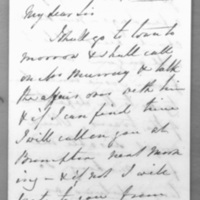 My dear Sir
I shall go to town to
morrow & shall call
on Mr Murray & talk
the affair over with him
& if I can find time
I will call on you at
Brompton next morn
ing — & if not I will